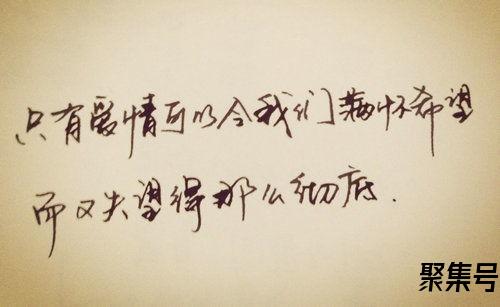 只有爱情可以令我们满怀希望
而又失望得那么彻底.
聚集号